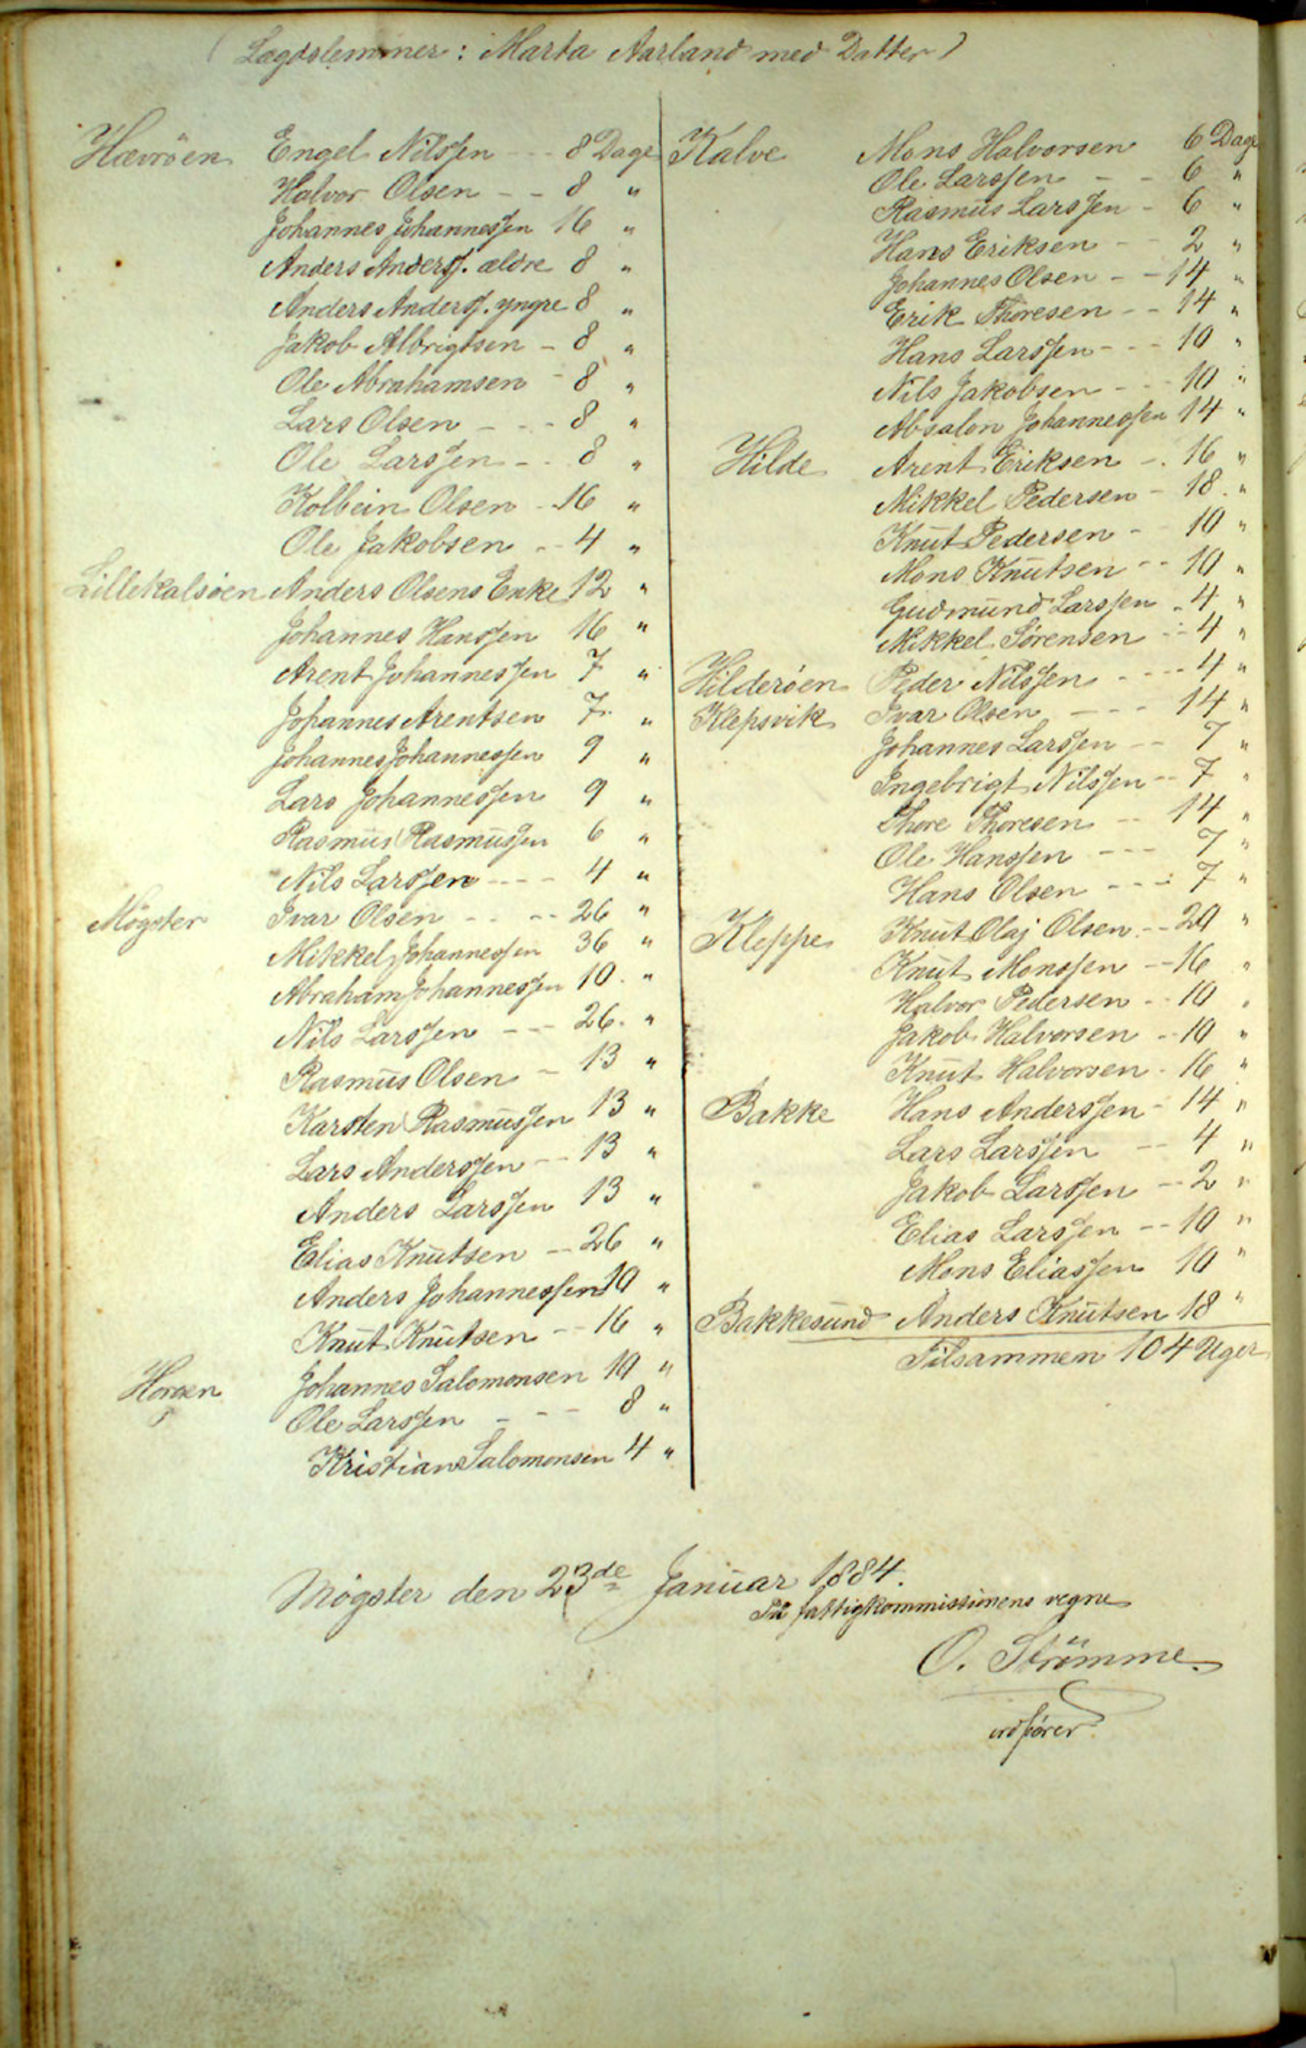 ( Lægdslemmer : Marta Aarland med Datter )
Hævröen Engel Nilssen - - 8 Dage
Halvor Olsen - - 8 "
Johannes Johannessen 16 "
Anders Anderss. ældre 8 "
Anders Anderss. yngre 8 "
Jakob Albrigtsen - 8 "
Ole Abrahamsen - 8 "
Lars Olsen - - - 8 "
Ole Larssen - - 8 "
Kolbein Olsen - 16 "
Ole Jakobsen - - 4 "
Lillekalsöen Anders Olsens Enke 12 "
Johannes Hanssen 16 "
Arent Johannessen 7 "
Johannes Arentsen 7 "
Johannes Johannessen 9 "
Lars Johannessen 9 "
Rasmus Rasmussen 6 "
Nils Larssen - - - 4 "
Mögster Ivar Olsen - - - - 26 "
Mikkel Johannessen 36 "
Abraham Johannessen 10 "
Nils Larssen - - - 26 "
Rasmus Olsen - 13 "
Karsten Rasmussen 13 "
Lars Anderssen - - 13 "
Anders Larssen 13 "
Elias Knutsen - - 26 "
Anders Johannessen 10 "
Knut Knutsen - - 16 "
Horgen Johannes Salomonsen 10 "
Ole Larssen - - - 8 "
Kristian Salomonsen 4 "
Kalve Mons Halvorsen 6 Dage
Ole Larssen - - 6 "
Rasmus Larssen - 6 "
Hans Eriksen - - 2 "
Johannes Olsen - - 14 "
Erik Thoresen - - 14 "
Hans Larssen - - - 10 "
Nils Jakobsen - - - 10 "
Absalon Johannessen 14 "
Hilde Arent Eriksen - . 16 "
Mikkel Pedersen - 18 "
Knut Pedersen - 10 "
Mons Knutsen - - 10 "
Gudmund Larssen - 4 "
Mikkel Sørensen - - 4 "
Hilderöen Peder Nilssen - - - - 4 "
Klepsvik Ivar Olsen - - - 14 "
Johannes Larssen - - 7 "
Ingebrigt Nilssen - - 7 "
Thore Thoresen - - 14 "
Ole Hanssen - - - 7 "
Hans Olsen - - - 7 "
Kleppe Knut Olaj Olsen - - 20 "
Knut Monssen - - 16 "
Halvor Pedersen - - 10 "
Jakob Halvorsen - - 10 "
Knut Halvorsen - 16 "
Bakke Hans Anderssen - 14 "
Lars Larssen - - 4 "
Jakob Larssen - - 2 "
Elias Larssen - - 10 "
Mons Eliassen 10 "
Bakkesund Anders Knutsen 18 "
Tilsammen 104 Uger
Mögster den 23de Januar 1884.
På fattigkommissionens vegne
O. Strömme
ordfører.